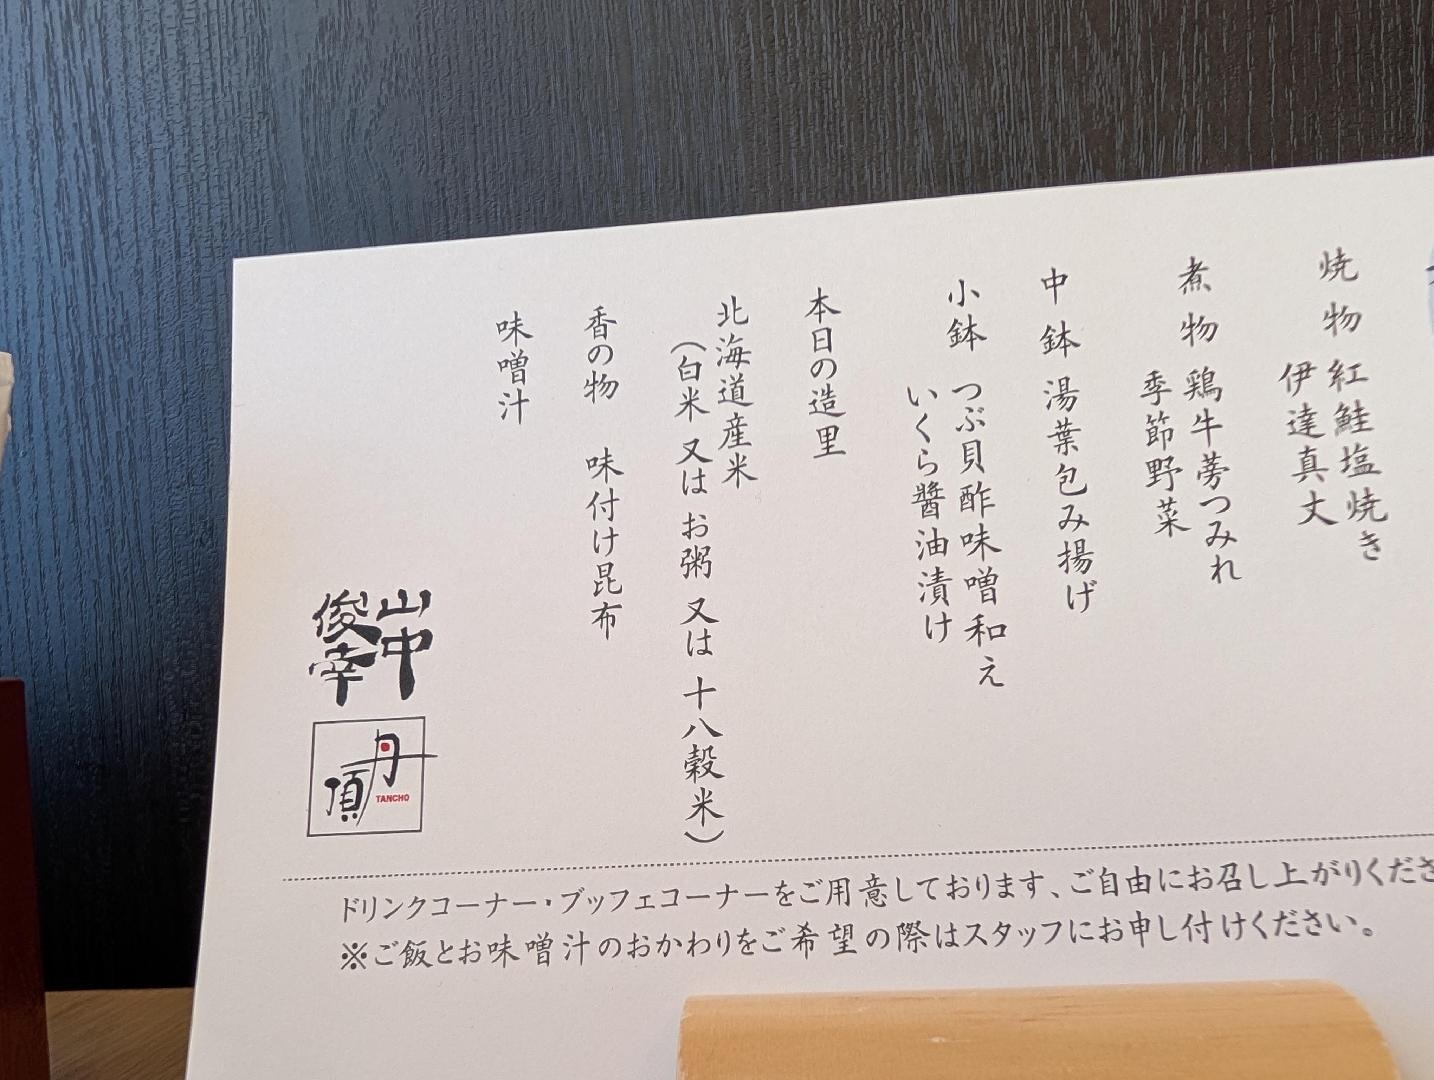 焼物 紅鮭塩焼き
伊達真丈
煮物 鶏牛蒡つみれ
季節野菜
中鉢 湯葉包み揚げ
小鉢 つぶ貝酢味噌和え
いくら醤油漬け
本日の造里
北海道産米
(白米 又は お粥 又は 十八穀米)
香の物 味付け昆布
味噌汁
山中
俊幸
丹頂
TANCHO
ドリンクコーナー・ブッフェコーナーをご用意しております、ご自由にお召し上がりくださ
※ご飯とお味噌汁のおかわりをご希望の際はスタッフにお申し付けください。